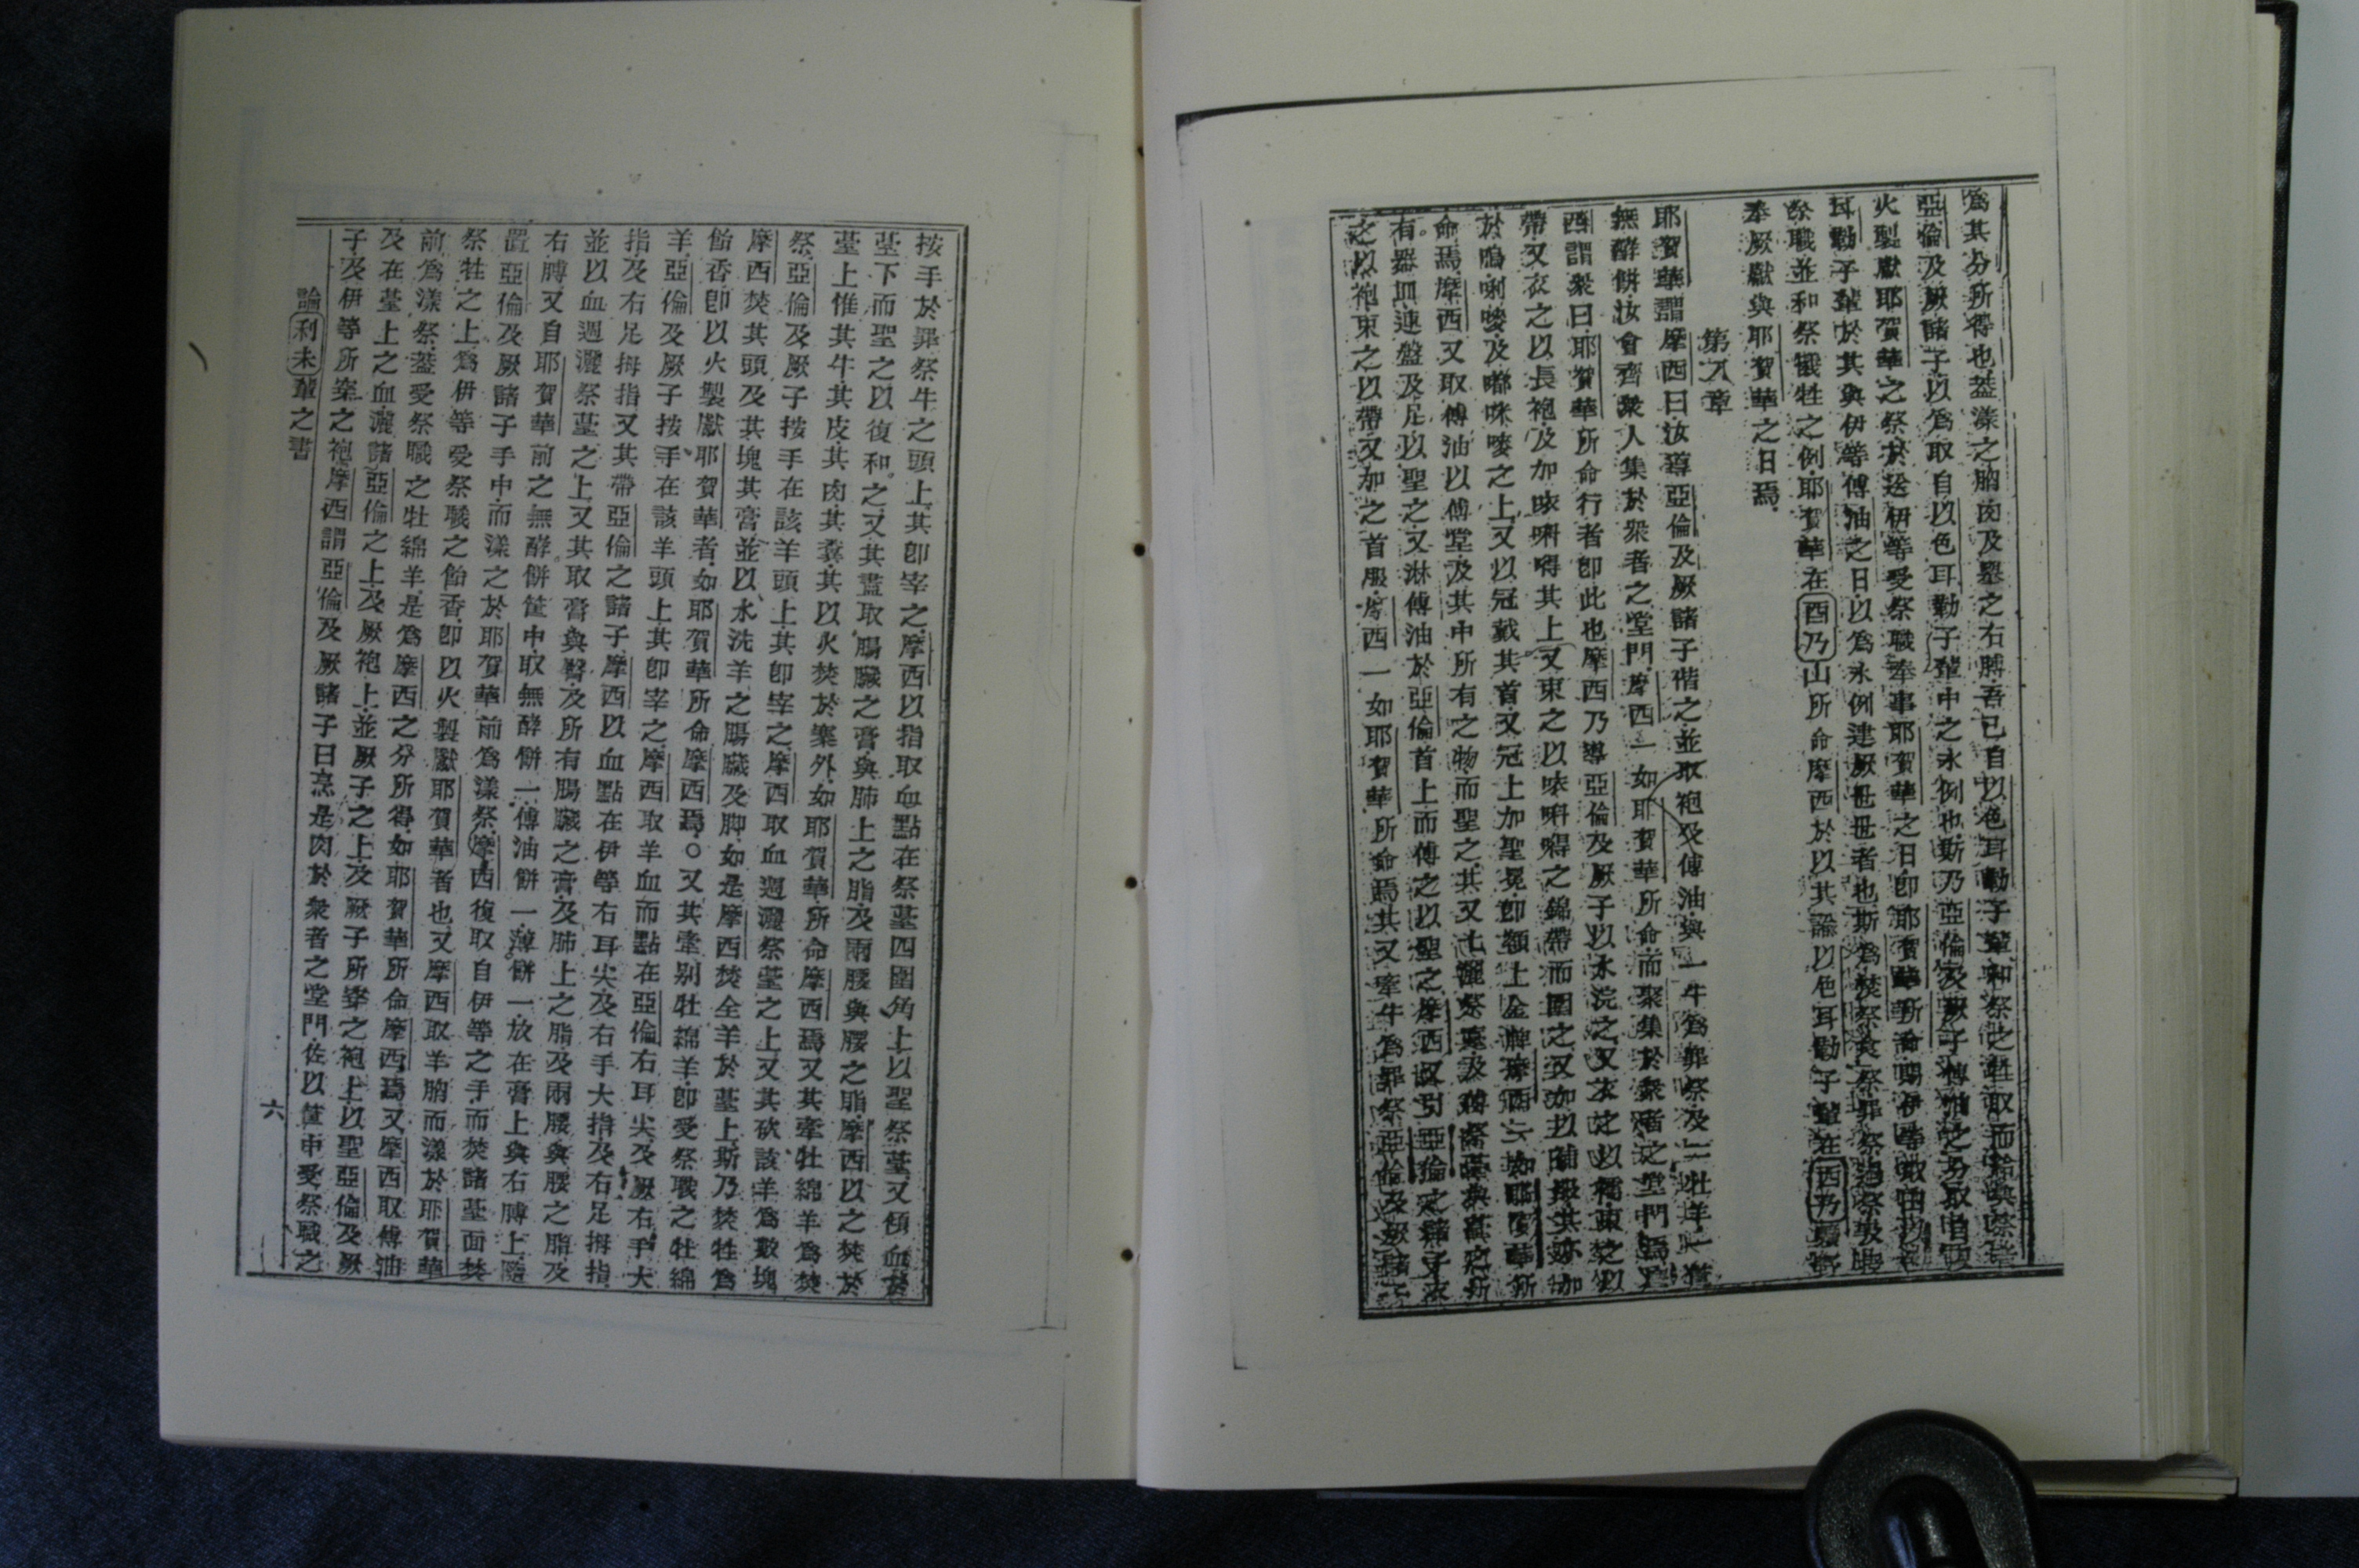 為其分所得也蓋漾之胸肉及舉之右膊吾已自以色耳勒子輩和祭之牲取而給與祭者
亞倫及厥諸子以為取自以色耳勒子輩中之永例也斯乃亞倫及厥子傅油之分取自
火製獻耶賀華之祭於送伊等受祭職奉事耶賀華之日即耶賀華所命賜伊等取由以
耳勒子輩於其與伊等傅油之日以為永例連厥世世者也斯為焚祭食祭罪祭過祭
祭職並和祭犧牲之例耶賀華在酉乃山所命摩西於以其諭以色耳勒子輩在西乃
奉厥獻與耶賀華之日焉
第八章
耶賀華謂摩西曰汝導亞倫及厥諸子偕之並取袍及傅油與一牛為罪祭及二牡羊一
無酵餅汝會齊眾人集於眾者之堂門摩西一如耶賀華所命而聚集於眾者之堂門焉
西謂眾曰耶賀華所命行者即此也摩西乃導亞倫及厥子以水浣之又衣之以襦束之以
帶又衣之以長袍及加㕷唎嘚其上又束之以㕷唎嘚之錦帶而圍之又加以胸
於嗚唎嘜及嘟咪嘜之上又以冠戴其首又冠上加聖冕即額上金牌摩西一如耶賀華所
命焉摩西又取傅油以傅堂及其中所有之物而聖之其又七灑祭臺及傅祭臺與其所
有器皿連盤及足以聖之又淋傅油於亞倫首上而傅之以聖之摩西又引亞倫之諸子衣
之以袍束之以帶又加之首服摩西一如耶賀華所命焉其又牽牛為罪祭亞倫及厥諸子
按手於罪祭牛之頭上其即宰之摩西以指取血點在祭臺四圍角上以聖祭臺又傾血於
臺下而聖之以復和之又其盡取腸臟之膏與肺上之脂及兩腰與腰之脂摩西以之焚於
臺上惟其牛其皮其肉其糞其以火焚於寨外如耶賀華所命摩西焉又其牽牡綿羊為焚
祭亞倫及厥子按手在該羊頭上其即宰之摩西取血週灑祭臺之上又其砍該羊為數塊
摩西焚其頭及其塊其膏並以水洗羊之腸臟及脚如是摩西焚全羊於臺上斯乃焚牲為
飴香即以火製獻耶賀華者如耶賀華所命摩西焉○又其牽别牡綿羊即受祭職之牡綿
羊亞倫及厥子按手在該羊頭上其即宰之摩西取羊血而點在亞倫右耳尖及厥右手大
指及右足拇指又其帶亞倫之諸子摩西以血點在伊等右耳尖及右手大指及右足拇指
並以血週灑祭臺之上又其取膏與臀及所有腸臟之膏及肺上之脂及兩腰與腰之脂及
右膊又自耶賀華前之無酵餅筐中取無酵餅一傅油餅一薄餅一放在膏上與右膊上隨
置亞倫及厥諸子手中而漾之於耶賀華前為漾祭摩西復取自伊等之手而焚諸臺面焚
祭牲之上為伊等受祭職之飴香即以火製獻耶賀華者也又摩西取羊胸而漾於耶賀華
前為漾祭蓋受祭職之牡綿羊是為摩西之分所得如耶賀華所命摩西焉又摩西取傅油
及在臺上之血灑諸亞倫之上及厥袍上並厥子之上及厥子所穿之袍上以聖亞倫及厥
子及伊等所穿之袍摩西謂亞倫及厥諸子曰烹是肉於眾者之堂門佐以筐中受祭職之
論利未輩之書
六